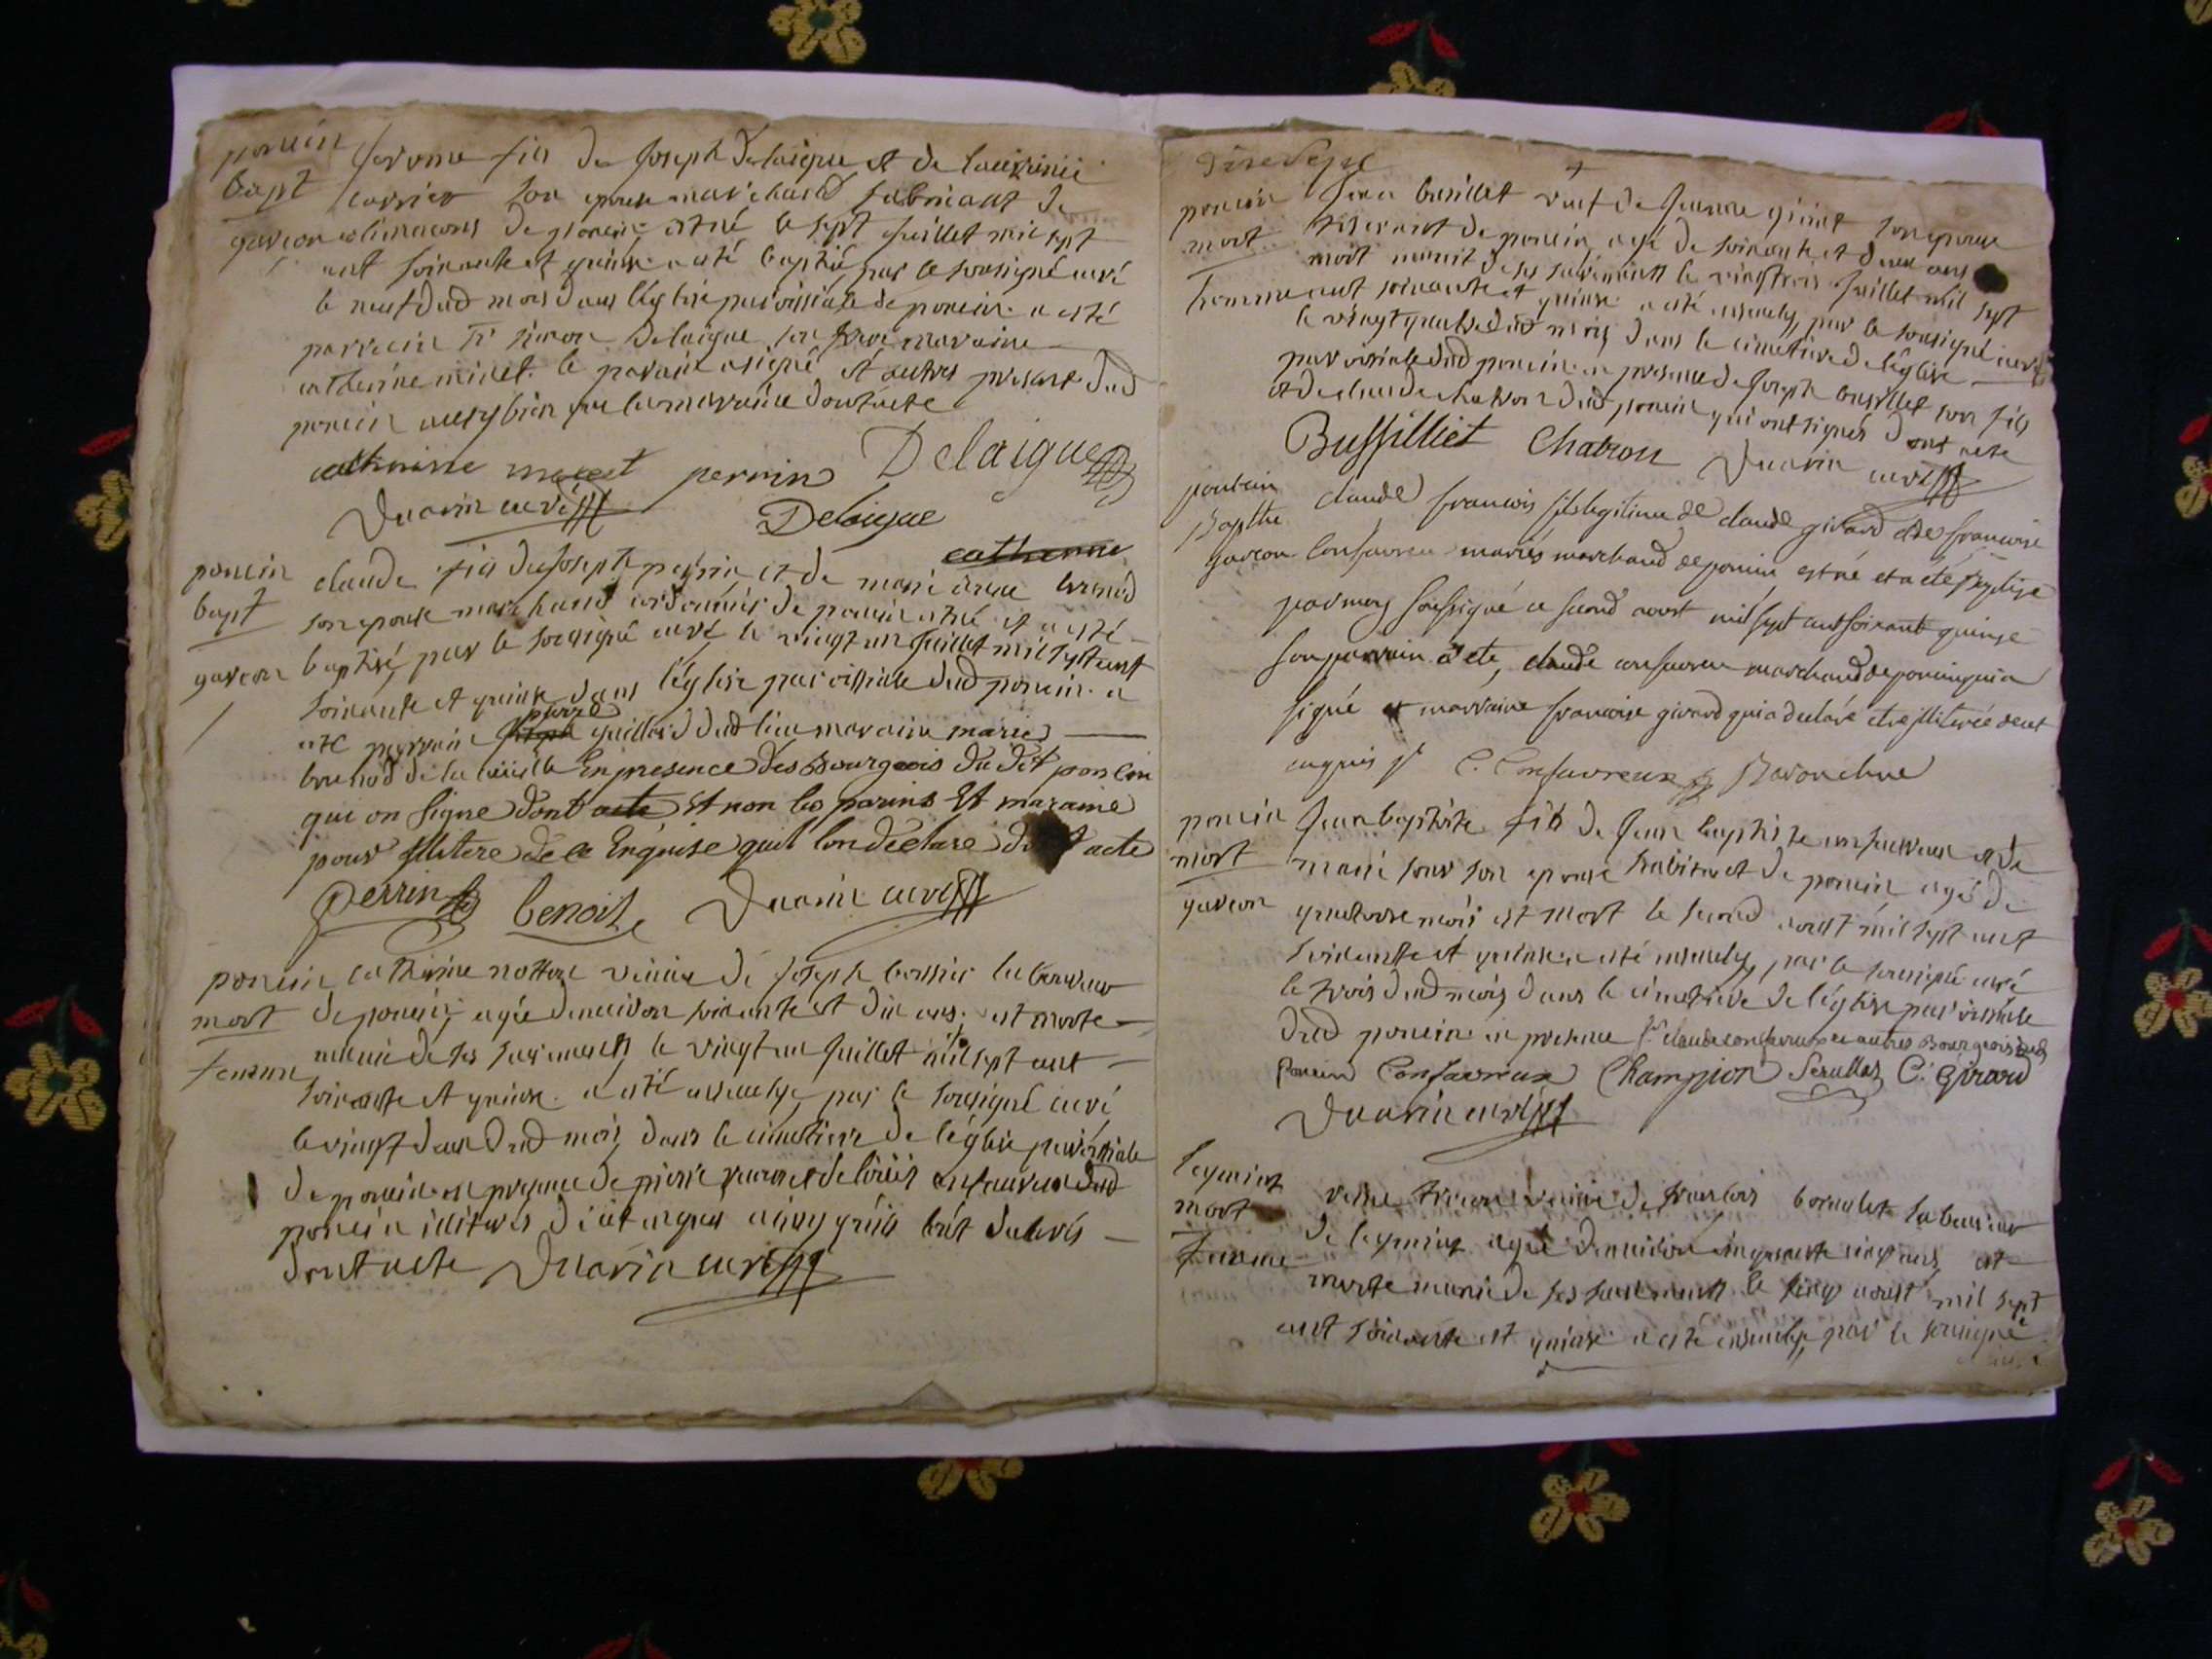 poncin
bapt
garcon
Jerome fils de Joseph Delaigue et de
son epouse marchand fabricant de
de poncin est né le sept juillet mil sept
cent soixante et quinze a esté baptisé par le sousigné curé
le neuf dud mois dans l'église paroissiale de poncin a esté
parrain Sr Simon Delaigue son frere maraine
catherine minet le parain a signé et autres present dud
poncin aussy bien que la maraine dont acte
catherine perrin Delaigue
Duarin curé Delaigue
poncin
bapt
garcon
catherine
claude fils de Joseph perrin et de marie brunod
son epouse marchand cordonnier de poncin est né et a esté
baptisé par le sousigné curé le vingt un juillet mil sept cent
soixante et quinze dans l'église paroissiale dud poncin a
pierre
esté parrain gaillard dud lieu maraine marie
brunod de la En presence des Bourgeois du dit poncin
qui on signe dont acte Et non les parins Et maraine
pour illitere de ce Enquise quil lon declare acte
perrin benoit Duarin curé
poncin
mort
femme
catherine veuve de Joseph laboureur
de poncin agée d'environ soixante et dix ans est morte
munie de ses sacremens le vingt un juillet mil sept cent
soixante et quinze a esté ensevelye par le sousigné curé
le vingt deux dud mois dans le cimetiere de l'église paroissiale
de poncin en presence de pierre et de louis confavreux dud
poncin illiterés de ce enquis ainsy qu'ils l'ont declarés
dont acte Duarin curé
Dixsept
poncin
mort
homme
Jean busillet veuf de Jeanne son epouse
tisserand de poncin agé de soixante et deux ans
mort munit de ses sacremens le vingt trois juillet mil sept
cent soixante et quinze a esté ensevely par le sousigné curé
le vingt quatre dud mois dans le cimetiere de l'église
paroissiale dud poncin en presence de Joseph busillet son fils
et de claude chatron dud poncin qui ont signés dont acte
Bussilliet Chatron Duarin curé
poncin
Bapthe
garcon
claude francois fils legitime de claude girard et de francoise
Confavreu mariés marchand de poncin est né et a eté Baptisé
par moy soussigné ce second aoust mil sept cent soixant quinze
son parrain a ete claude confavreu marchand de poncin qui a
signé et marraine francoise girard qui a declaré etre illiterée deut
enquis C. Confavreux
poncin
mort
garcon
Jean baptiste fils de Jean baptiste confavreux et de
marie son epouse habitant de poncin agé de
quatorze mois est mort le second aoust mil sept cent
soixante et quinze a esté ensevely par le sousigné curé
le trois dud mois dans le cimetiere de l'église paroissiale
dud poncin en presence Sr claude confavreux et autres Bourgeois dud
poncin Confavreux Champion C. Girard
Duarin curé
leymint
mort
femme
veuve de francois laboureur
de leymint agée d'environ cinquante cinq ans est
morte munie de ses sacremens le cinq aoust mil sept
cent soixante et quinze a esté ensevelye par le sousigné